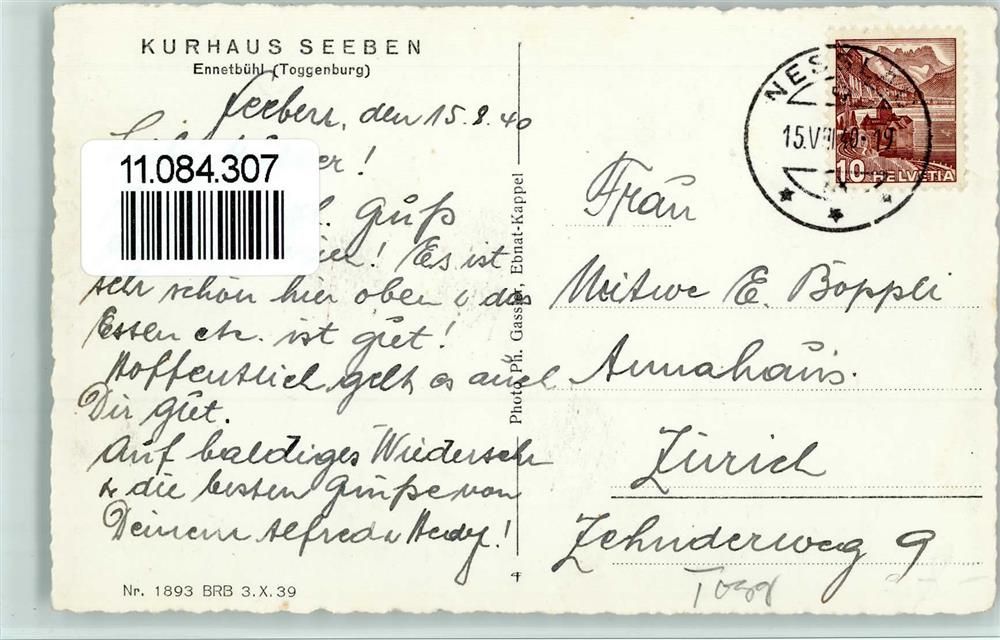 KURHAUS SEEBEN
Ennetbühl (Toggenburg)
Seeben, den 15.8.40
11.084.307
er!
Gruß
hier! Es ist
sehr schön hier oben u das
Essen etc. ist gut!
Hoffentlich geht es auch
Dir gut.
Auf baldiges Wiedersehn
& die besten Grüße von
Deinem Alfred u Hedy!
Nr. 1893 BRB 3.X.39
Photo Ph. Gasser, Ebnat-Kappel
NESSLAU
15.VIII.40-19
10 HELVETIA
Frau
Witwe E. Böppli
Annahaus.
Zürich
Zehnderweg 9
Togg